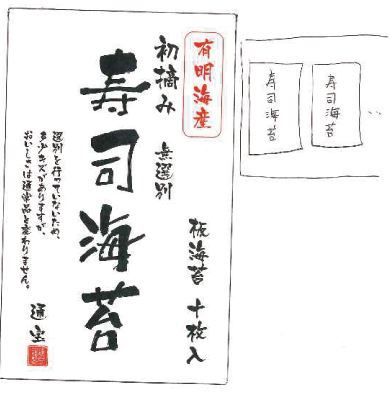 有明海産
初摘み 無選別
板海苔 十枚入
寿司海苔
選別を行っていないため、
多少キズがありますが、
おいしさは通常品と変わりません。
通宝
寿司海苔
寿司海苔